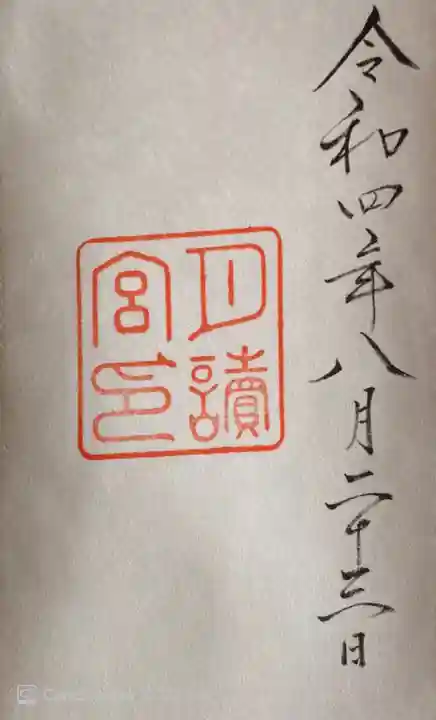 令和四年八月二十三日
月讀
宮印